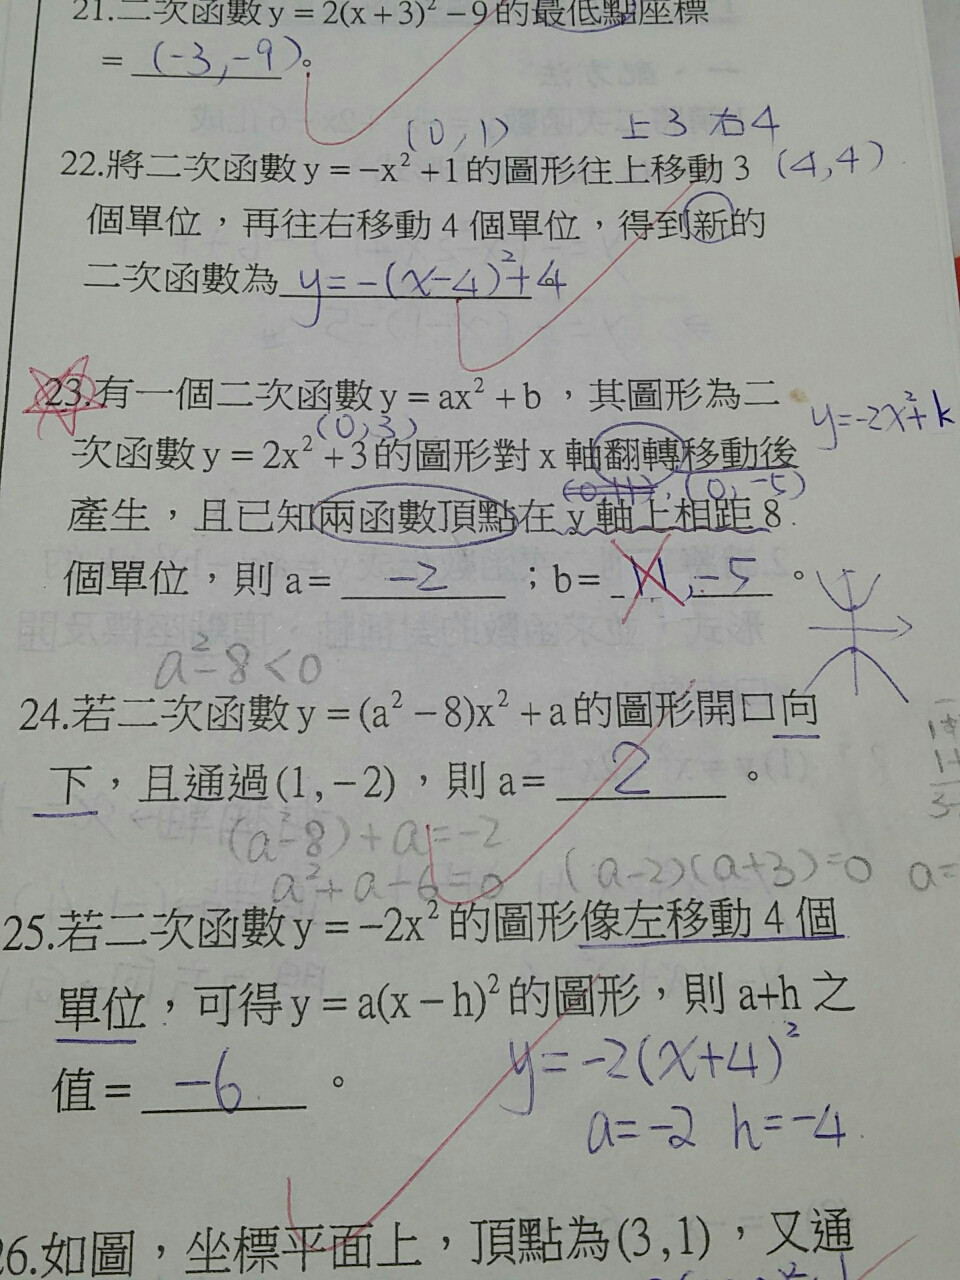 21.二次函數y = 2(x + 3)² − 9的最低點座標
= (-3,-9)。
(0,1) 上3 右4
22.將二次函數y = −x² +1的圖形往上移動3 (4,4)
個單位，再往右移動4個單位，得到新的
二次函數為 y=-(x-4)²+4
23.有一個二次函數y = ax² + b，其圖形為二
(0,3) y=-2x²+k
次函數y = 2x² +3的圖形對x軸翻轉移動後
(0,11), (0,-5)
產生，且已知兩函數頂點在y軸上相距8
個單位，則a= -2 ；b= 11,-5 。
a²-8<0
24.若二次函數y = (a² − 8)x² + a的圖形開口向
下，且通過(1, −2)，則a= 2 。
(a²-8)+a=-2
a²+a-6=0 (a-2)(a+3)=0 a=
25.若二次函數y = −2x²的圖形像左移動4個
單位，可得y = a(x − h)²的圖形，則a+h之
y=-2(x+4)²
值= -6 。
a=-2 h=-4
26.如圖，坐標平面上，頂點為(3,1)，又通